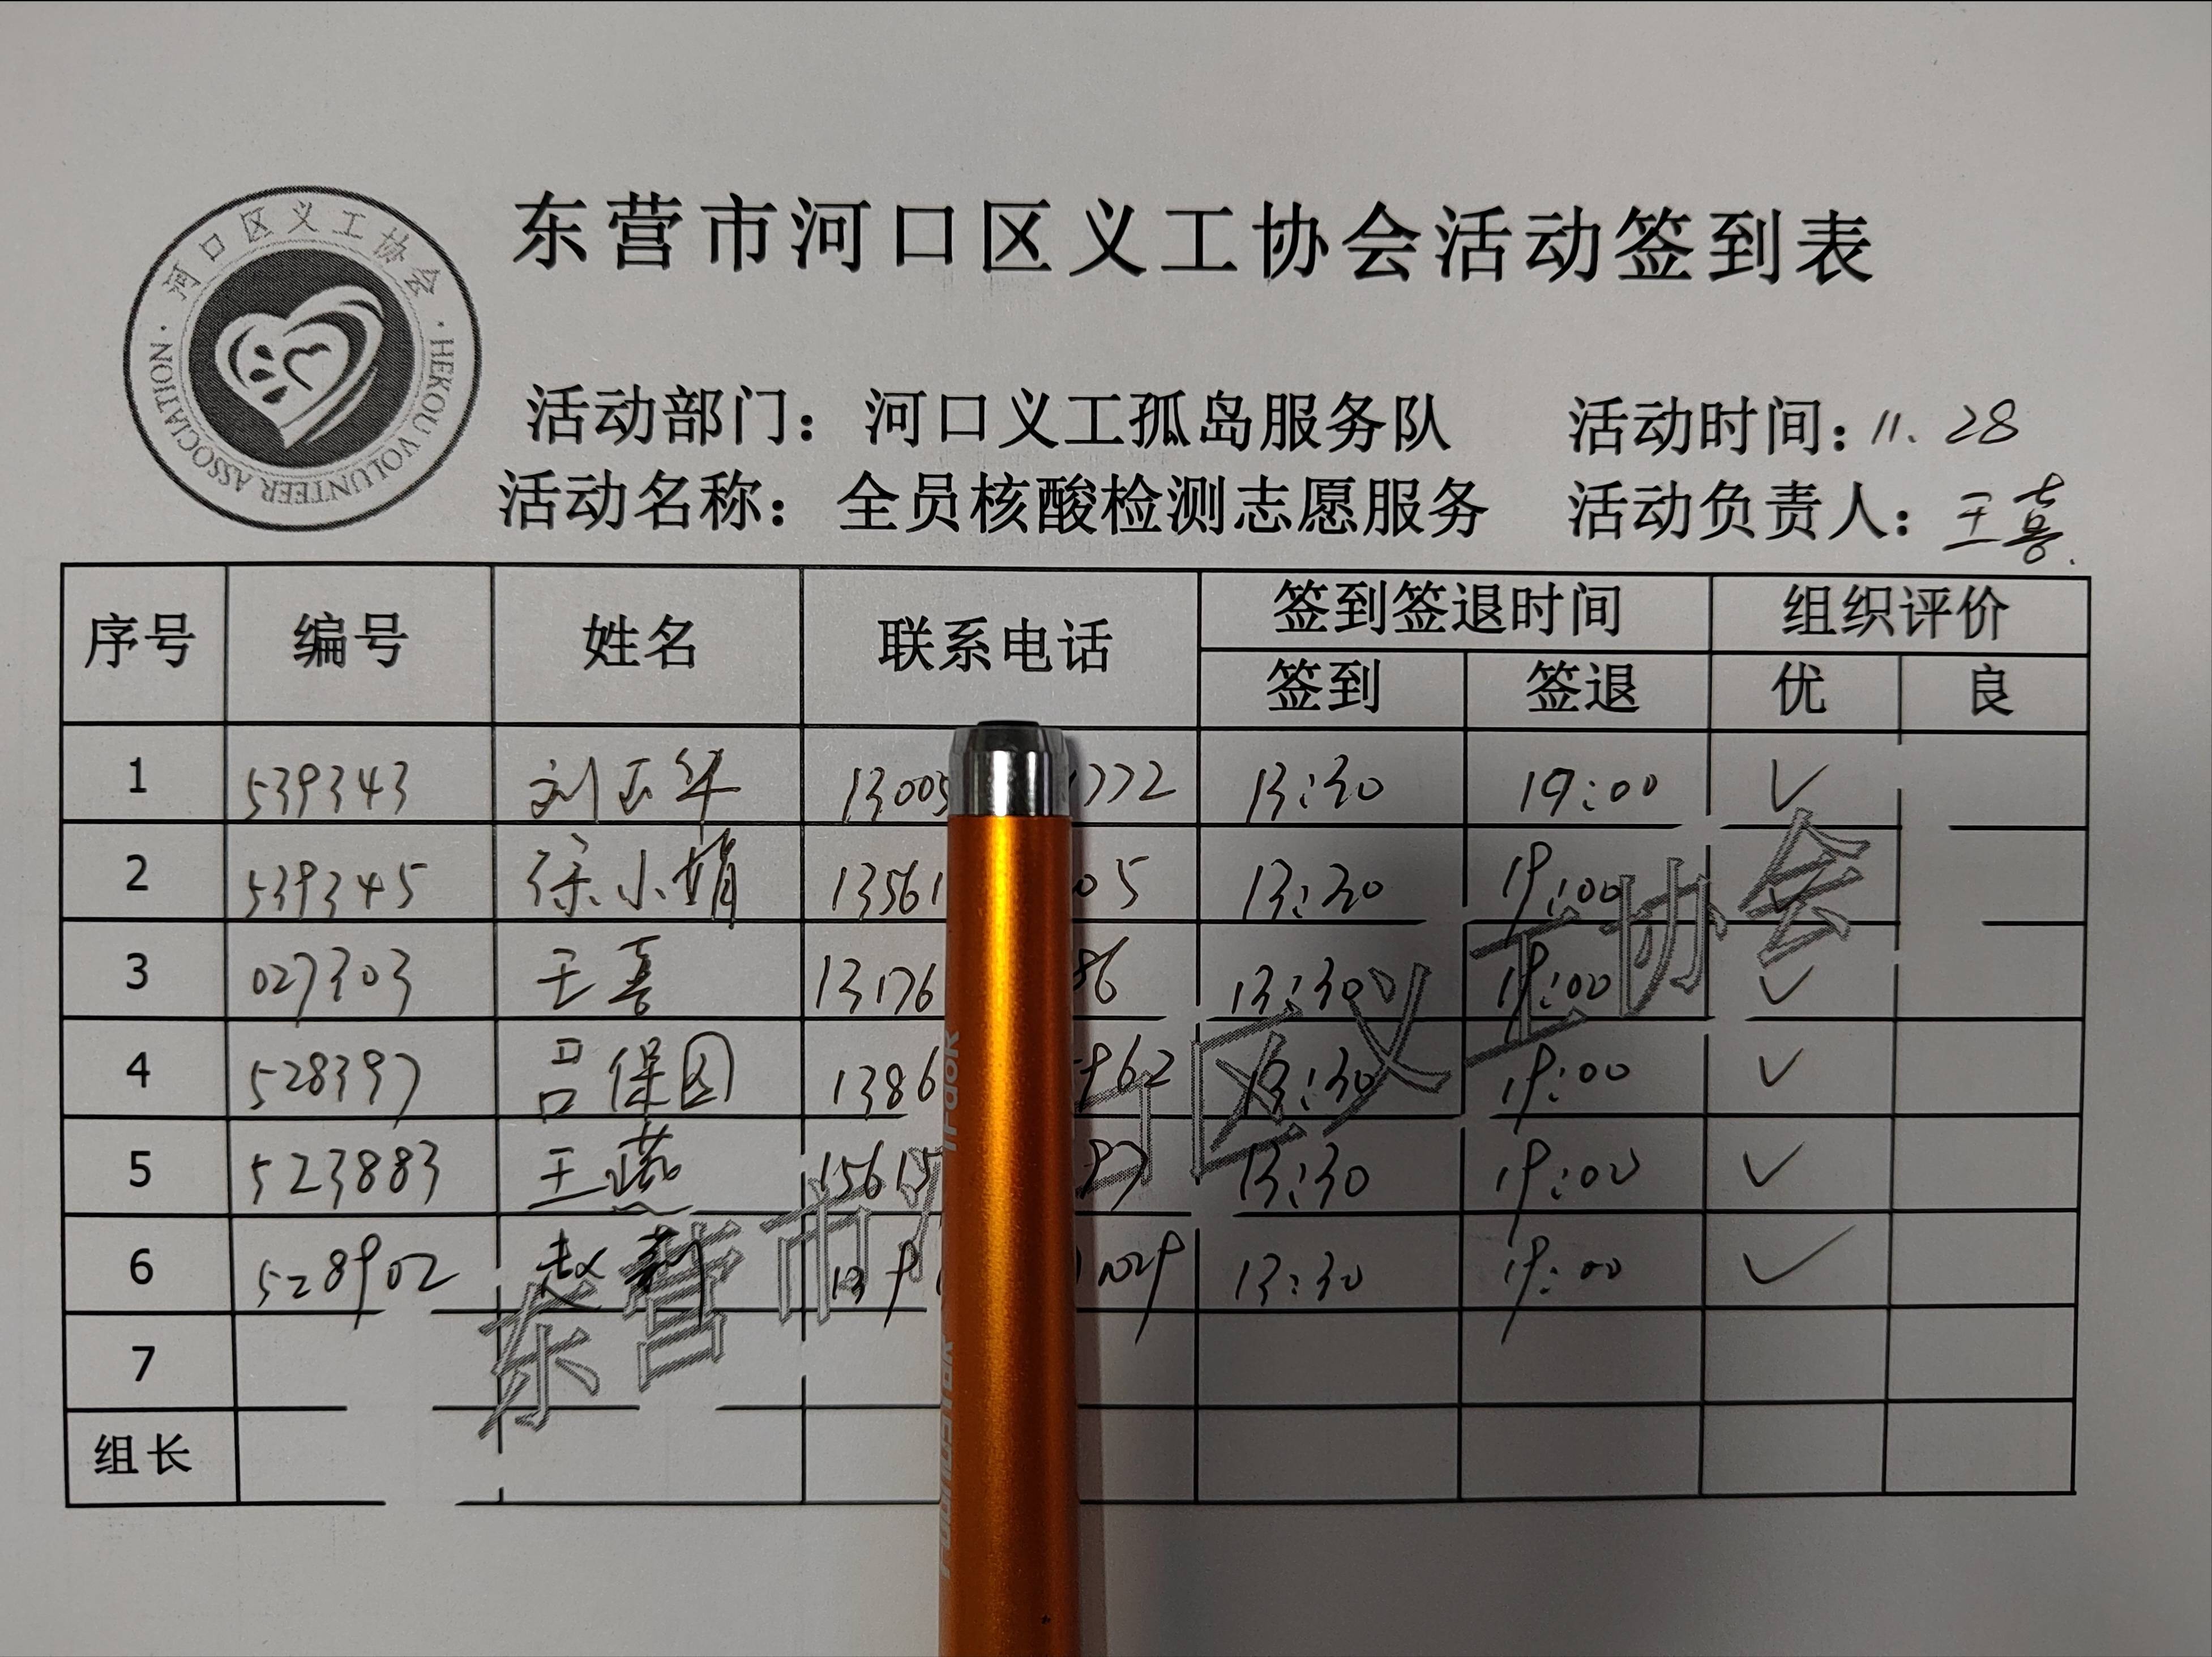 东营市河口区义工协会活动签到表
河口区义工协会
HEKOU VOLUNTEER ASSOCIATION
活动部门：河口义工孤岛服务队 活动时间：11.28
活动名称：全员核酸检测志愿服务 活动负责人：王喜
序号 编号 姓名 联系电话 签到签退时间 组织评价
签到 签退 优 良
1 539343 刘玉华 13005 1772 13:30 19:00 ✓
2 539345 徐小娟 13561 05 13:30 19:00 ✓
3 027303 王喜 13176 86 13:30 19:00 ✓
4 528397 吕保国 1386 962 13:30 19:00 ✓
5 523883 王燕 15615 97 13:30 19:00 ✓
6 528902 赵莉 139 1029 13:30 19:00 ✓
7
组长
东营市 区义工协会